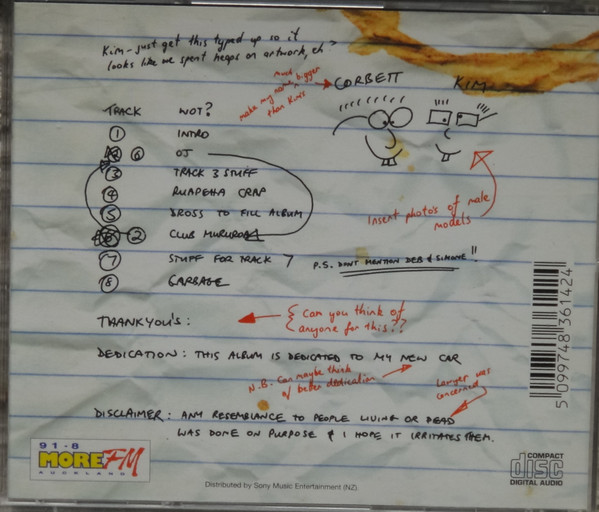 Kim - just get this typed up so it
looks like we spent heaps on artwork, eh?
make my name much bigger
than Kim's
CORBETT KIM
TRACK WOT?
1 INTRO
6 OJ
3 TRACK 3 STUFF
4 RUAPEHA CRAP
5 DROSS TO FILL ALBUM
2 CLUB MURUROA
7 STUFF FOR TRACK 7
8 GARBAGE
Insert photo's of male
models
P.S. DONT MENTION DEB & SIMONE!!
THANKYOU'S:
Can you think of
anyone for this??
DEDICATION: THIS ALBUM IS DEDICATED TO MY NEW CAR
N.B. Can maybe think
of better dedication
Lawyer was
concerned
DISCLAIMER: ANY RESEMBLANCE TO PEOPLE LIVING OR DEAD
WAS DONE ON PURPOSE & I HOPE IT IRRITATES THEM.
91·8
MORE FM
AUCKLAND
Distributed by Sony Music Entertainment (NZ).
5 099748 361424
COMPACT
disc
DIGITAL AUDIO